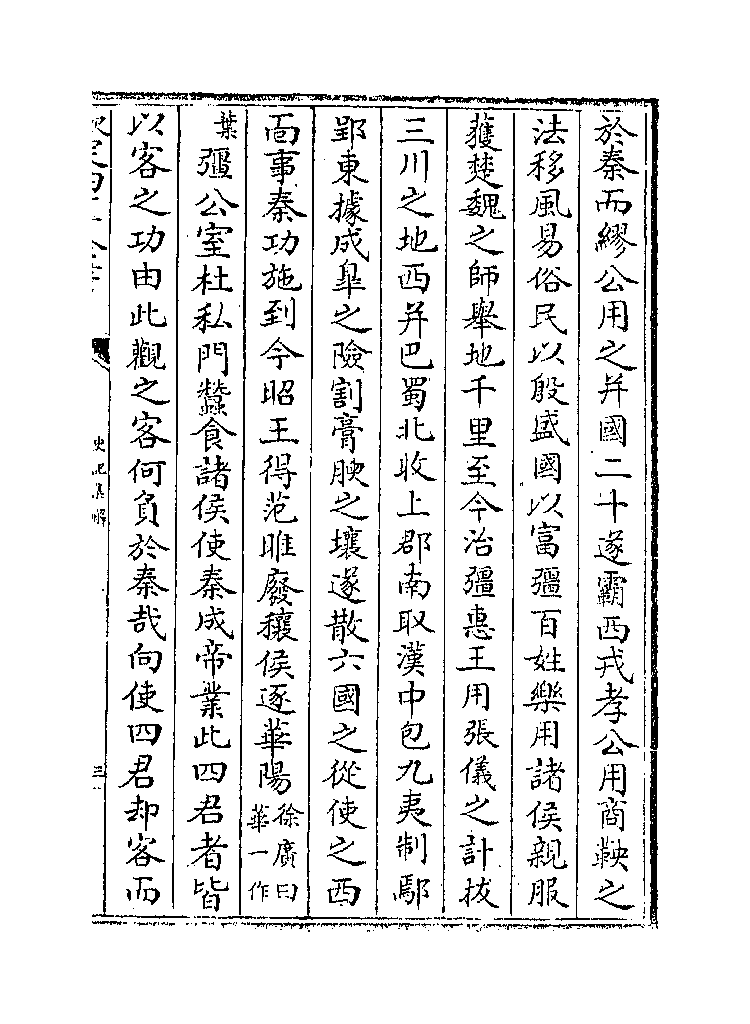 於秦而繆公用之并國二十遂霸西戎孝公用商鞅之
法移風易俗民以殷盛國以富彊百姓樂用諸侯親服
獲楚魏之師舉地千里至今治彊惠王用張儀之計拔
三川之地西并巴蜀北收上郡南取漢中包九夷制鄢
郢東據成臯之險割膏腴之壤遂散六國之從使之西
面事秦功施到今昭王得范雎廢穰侯逐華陽徐廣曰華一作
葉彊公室杜私門蠶食諸侯使秦成帝業此四君者皆
以客之功由此觀之客何負於秦哉向使四君却客而
史記集解
三